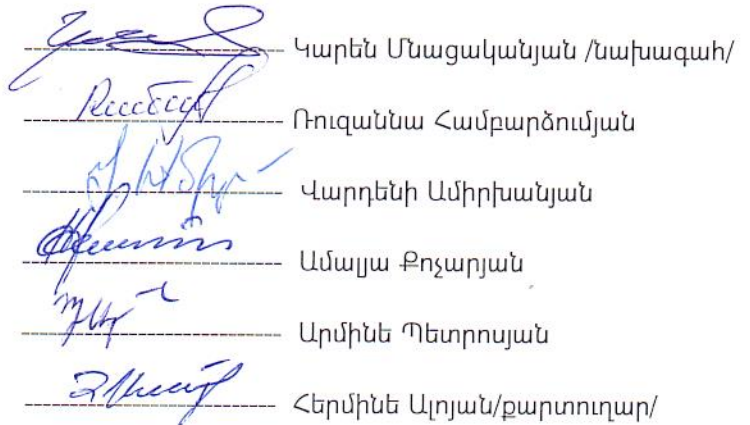 Կարեն Մնացականյան /նախագահ/
Ռուզաննա Համբարձումյան
Վարդենի Ամիրխանյան
Ամալյա Քոչարյան
Արմինե Պետրոսյան
Հերմինե Ալոյան/քարտուղար/